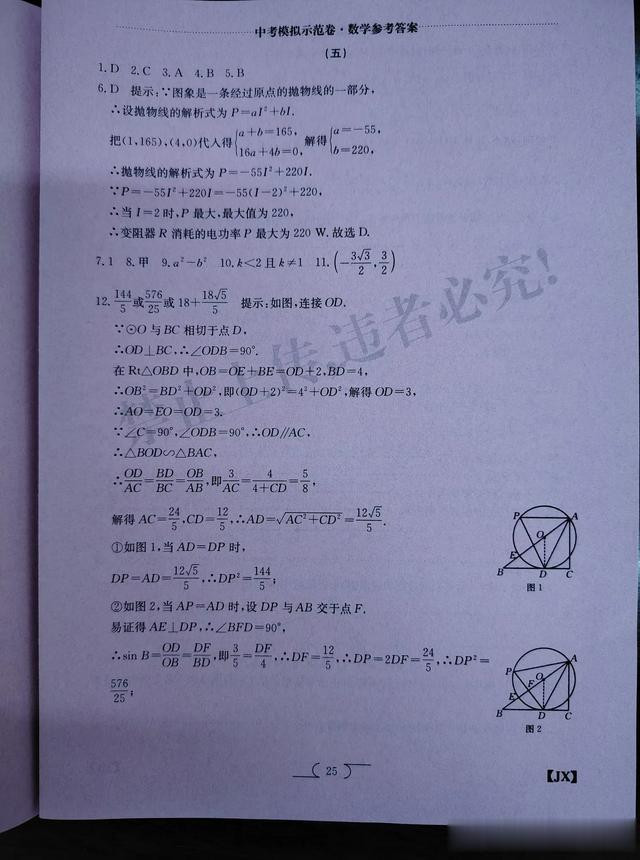 中考模拟示范卷·数学参考答案
(五)
1.D 2.C 3.A 4.B 5.B
6.D 提示:∵图象是一条经过原点的抛物线的一部分,
∴设抛物线的解析式为P=aI²+bI.
把(1,165),(4,0)代入得{a+b=165, 16a+4b=0, 解得{a=-55, b=220,
∴抛物线的解析式为P=-55I²+220I.
∵P=-55I²+220I=-55(I-2)²+220,
∴当I=2时,P最大,最大值为220,
∴变阻器R消耗的电功率P最大为220 W.故选D.
7.1 8.甲 9.a²-b² 10.k<2且k≠1 11.(-3√3/2,3/2)
12.144/5或576/25或18+18√5/5 提示:如图,连接OD.
∵⊙O与BC相切于点D,
∴OD⊥BC,∴∠ODB=90°.
在Rt△OBD中,OB=OE+BE=OD+2,BD=4,
∴OB²=BD²+OD²,即(OD+2)²=4²+OD²,解得OD=3,
∴AO=EO=OD=3.
∵∠C=90°,∠ODB=90°,∴OD∥AC,
∴△BOD∽△BAC,
∴OD/AC=BD/BC=OB/AB,即3/AC=4/(4+CD)=5/8,
解得AC=24/5,CD=12/5,∴AD=√(AC²+CD²)=12√5/5.
①如图1,当AD=DP时,
DP=AD=12√5/5,∴DP²=144/5;
②如图2,当AP=AD时,设DP与AB交于点F.
易证得AE⊥DP,∴∠BFD=90°,
∴sin B=OD/OB=DF/BD,即3/5=DF/4,∴DF=12/5,∴DP=2DF=24/5,∴DP²=
576/25;
P A
O
E
B D C
图1
A
P
F O
E
B D C
图2
禁止上传,违者必究!
25
【JX】